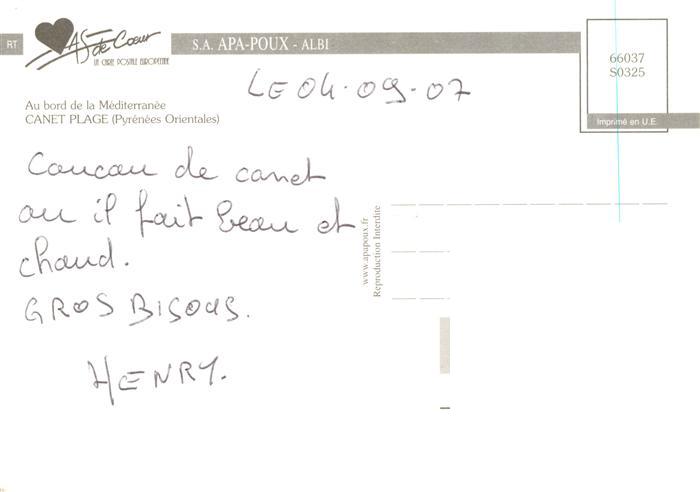 RT
AS de Cœur
LA CARTE POSTALE EUROPEENNE
S.A. APA-POUX - ALBI
66037
S0325
Imprimé en U.E.
LE 04.09.07
Au bord de la Méditerranée
CANET PLAGE (Pyrénées Orientales)
Coucou de canet
ou il fait beau et
chaud.
GROS BISOUS.
HENRY.
www.apapoux.fr
Reproduction Interdite